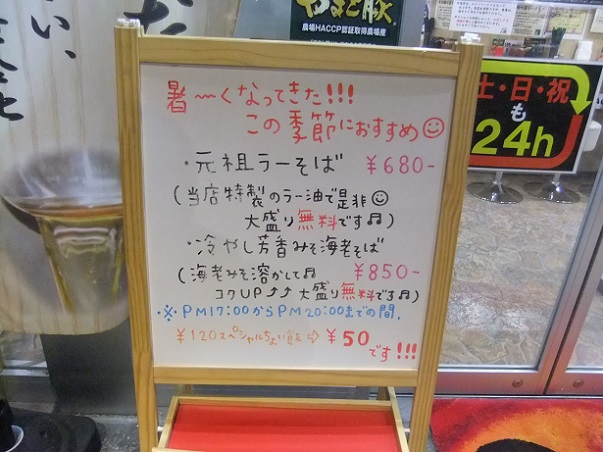 やまと豚
農場HACCP認証取得農場産
暑〜くなってきた!!!
この季節におすすめ☺
・元祖ラーそば ¥680-
(当店特製のラー油で是非☺
大盛り無料です♫)
・冷やし芳香みそ海老そば
¥850-
(海老みそ溶かして♫
コクUP⤴⤴大盛り無料です♫)
・※PM17:00からPM20:00までの間、
¥120スペシャルちょい飯⇨¥50です!!!
土・日・祝
も
24h